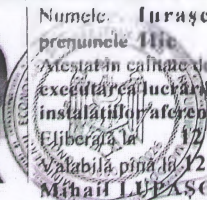 Numele Iurașc
prenumele Ilie
Atestat în calitate de
executarea lucrăril
instalațiilor aferen
Eliberată la 12
Valabilă pînă la 12
Mihail LUPAȘC
ECONO